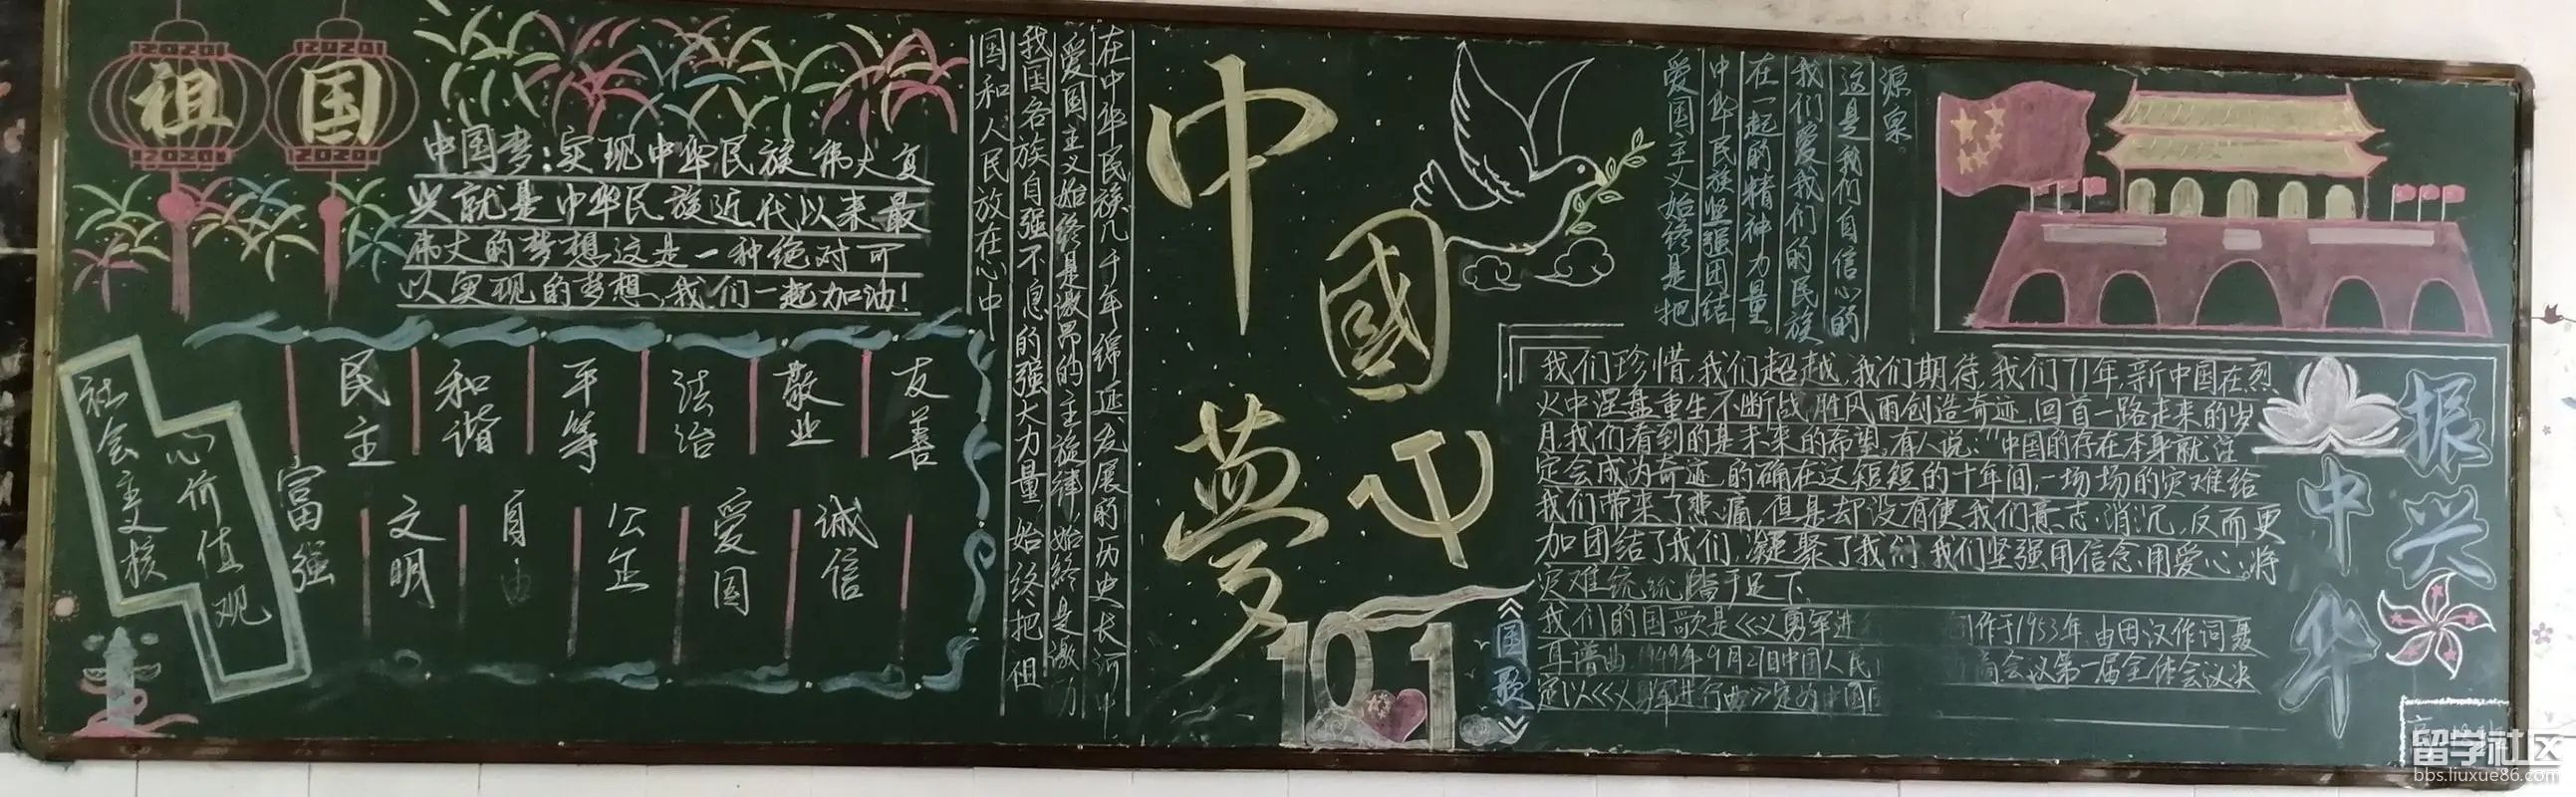 2020
2020
祖
国
2020
2020
中国梦：实现中华民族伟大复
兴就是中华民族近代以来最
伟大的梦想,这是一种绝对可
以实现的梦想,我们一起加油！
社会主义核
心价值观
富强
民主
文明
和谐
自由
平等
公正
法治
爱国
敬业
诚信
友善
在中华民族几千年绵延发展的历史长河中
爱国主义始终是激昂的主旋律,始终是激力
我国各族自强不息的强大力量,始终把祖
国和人民放在心中
中
國
梦
10.1
源泉。
这是我们自信心的
我们爱我们的民族
在一起的精神力量。
中华民族坚强团结
爱国主义始终是把
我们珍惜,我们超越,我们期待,我们71年,新中国在烈
火中涅盘重生不断战胜风雨创造奇迹,回首一路走来的岁
月我们看到的是未来的希望,有人说:“中国的存在本身就注
定会成为奇迹,的确在这短短的十年间,一场场的灾难给
我们带来了悲痛,但是却没有使我们意志消沉,反而更
加团结了我们,凝聚了我们,我们坚强用信念,用爱心,将
灾难统统踏于足下
《国歌》
我们的国歌是《义勇军进 创作于1953年,由田汉作词聂
耳谱曲,1949年9月21日中国人民 商会议第一届全体会议决
定以《义勇军进行曲》定为中国国
振兴
中华
留学社区
bbs.liuxue86.com